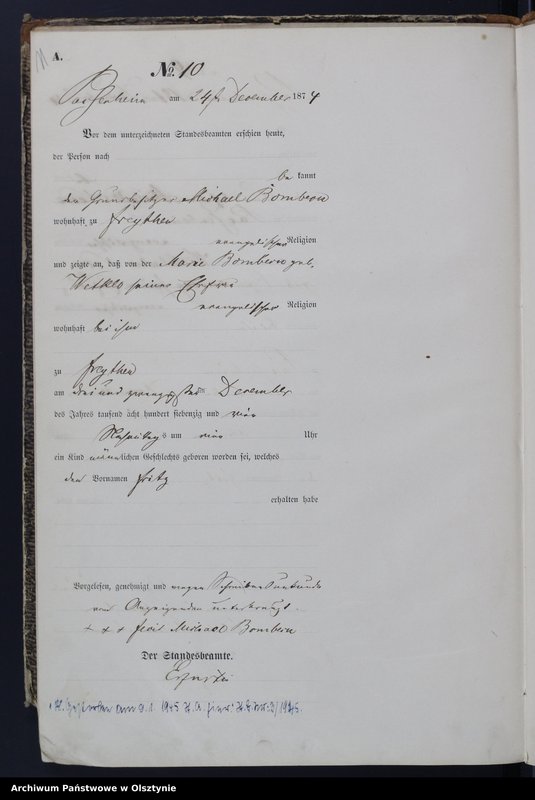 A.
No. 10
Passenheim am 24ten December 1874
Vor dem unterzeichneten Standesbeamten erschien heute,
der Person nach
be kannt
der Grundbesitzer Michael Bombern
wohnhaft zu Freythen
evangelischer Religion
und zeigte an, daß von der Marie Bombern geb.
seiner Ehefrau
evangelischer Religion
wohnhaft bei ihm
zu Freythen
am drei und zwanzigsten December
des Jahres tausend acht hundert siebenzig und vier
Nachmittags um vier Uhr
ein Kind männlichen Geschlechts geboren worden sei, welches
den Vornamen Fritz
erhalten habe
Vorgelesen, genehmigt und wegen Schreibensunkunde
vom Anzeigenden unterkreuzt.
+ + + Michael Bombern
Der Standesbeamte.
Gestorben am 9.1. 1945
Archiwum Państwowe w Olsztynie